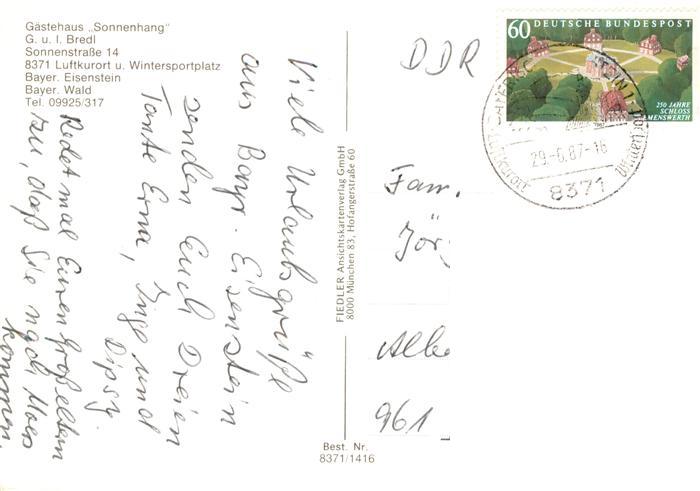 Gästehaus „Sonnenhang"
G. u. I. Bredl
Sonnenstraße 14
8371 Luftkurort u. Wintersportplatz
Bayer. Eisenstein
Bayer. Wald
Tel. 09925/317
Viele Urlaubsgrüße
aus Bayr. Eisenstein
senden Euch Dreien
Tante Erna, Inge und
Dipsy.
Redet mal Euren Großeltern
zu, daß Sie nach Moos
kommen.
FIEDLER Ansichtskartenverlag GmbH
8000 München 83, Hofangerstraße 60
Best. Nr.
8371/1416
DDR
Fam.
Jör
Albe
961
60 DEUTSCHE BUNDESPOST
250 JAHRE
SCHLOSS
CLEMENSWERTH
29.-6.87-16
8371
Luftkurort